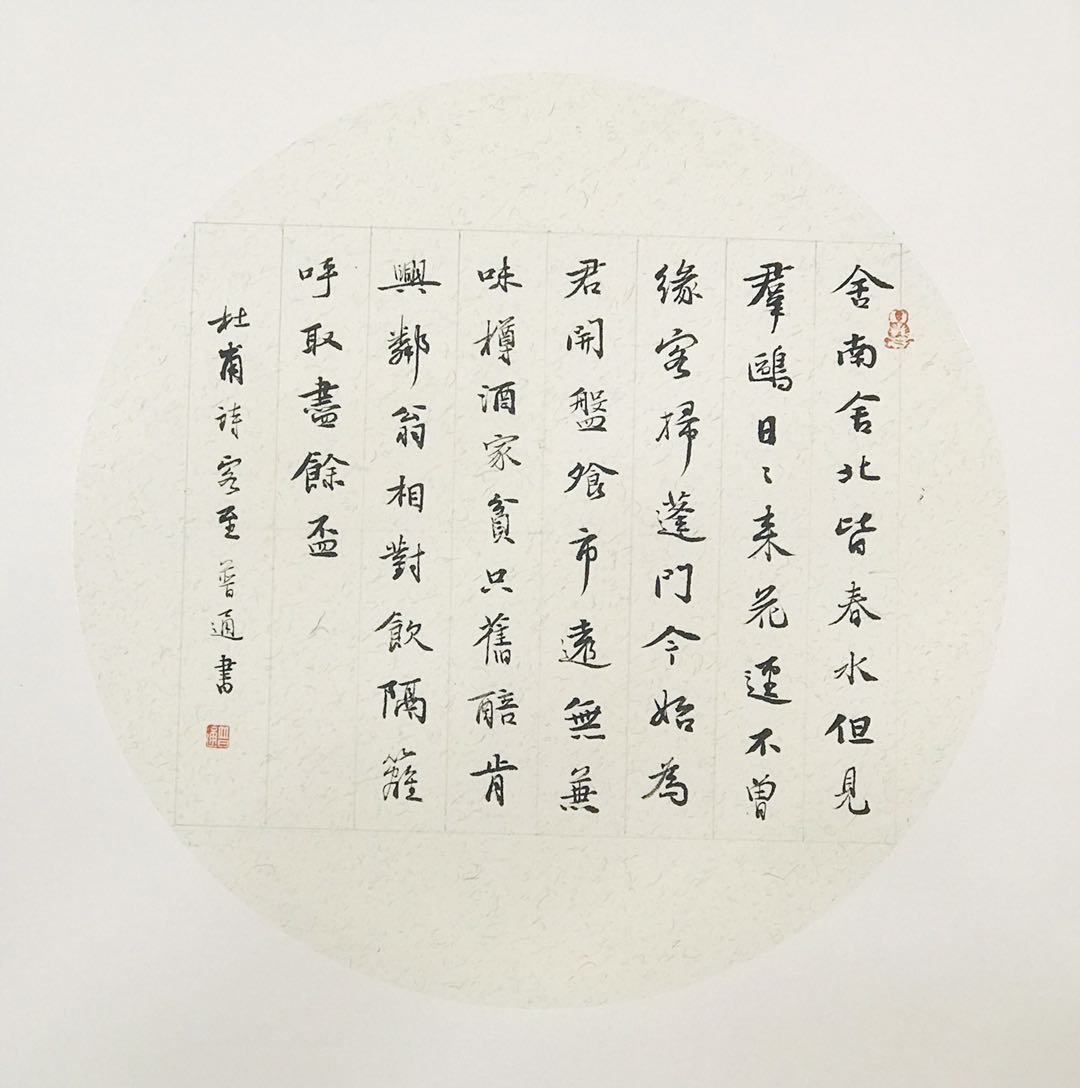 舍南舍北皆春水但見
羣鷗日〻来花逕不曾
緣客掃蓬門今始為
君開盤飧市遠無兼
味樽酒家貧只舊醅肯
興鄰翁相對飲隔籬
呼取盡餘盃
杜甫詩客至普通書